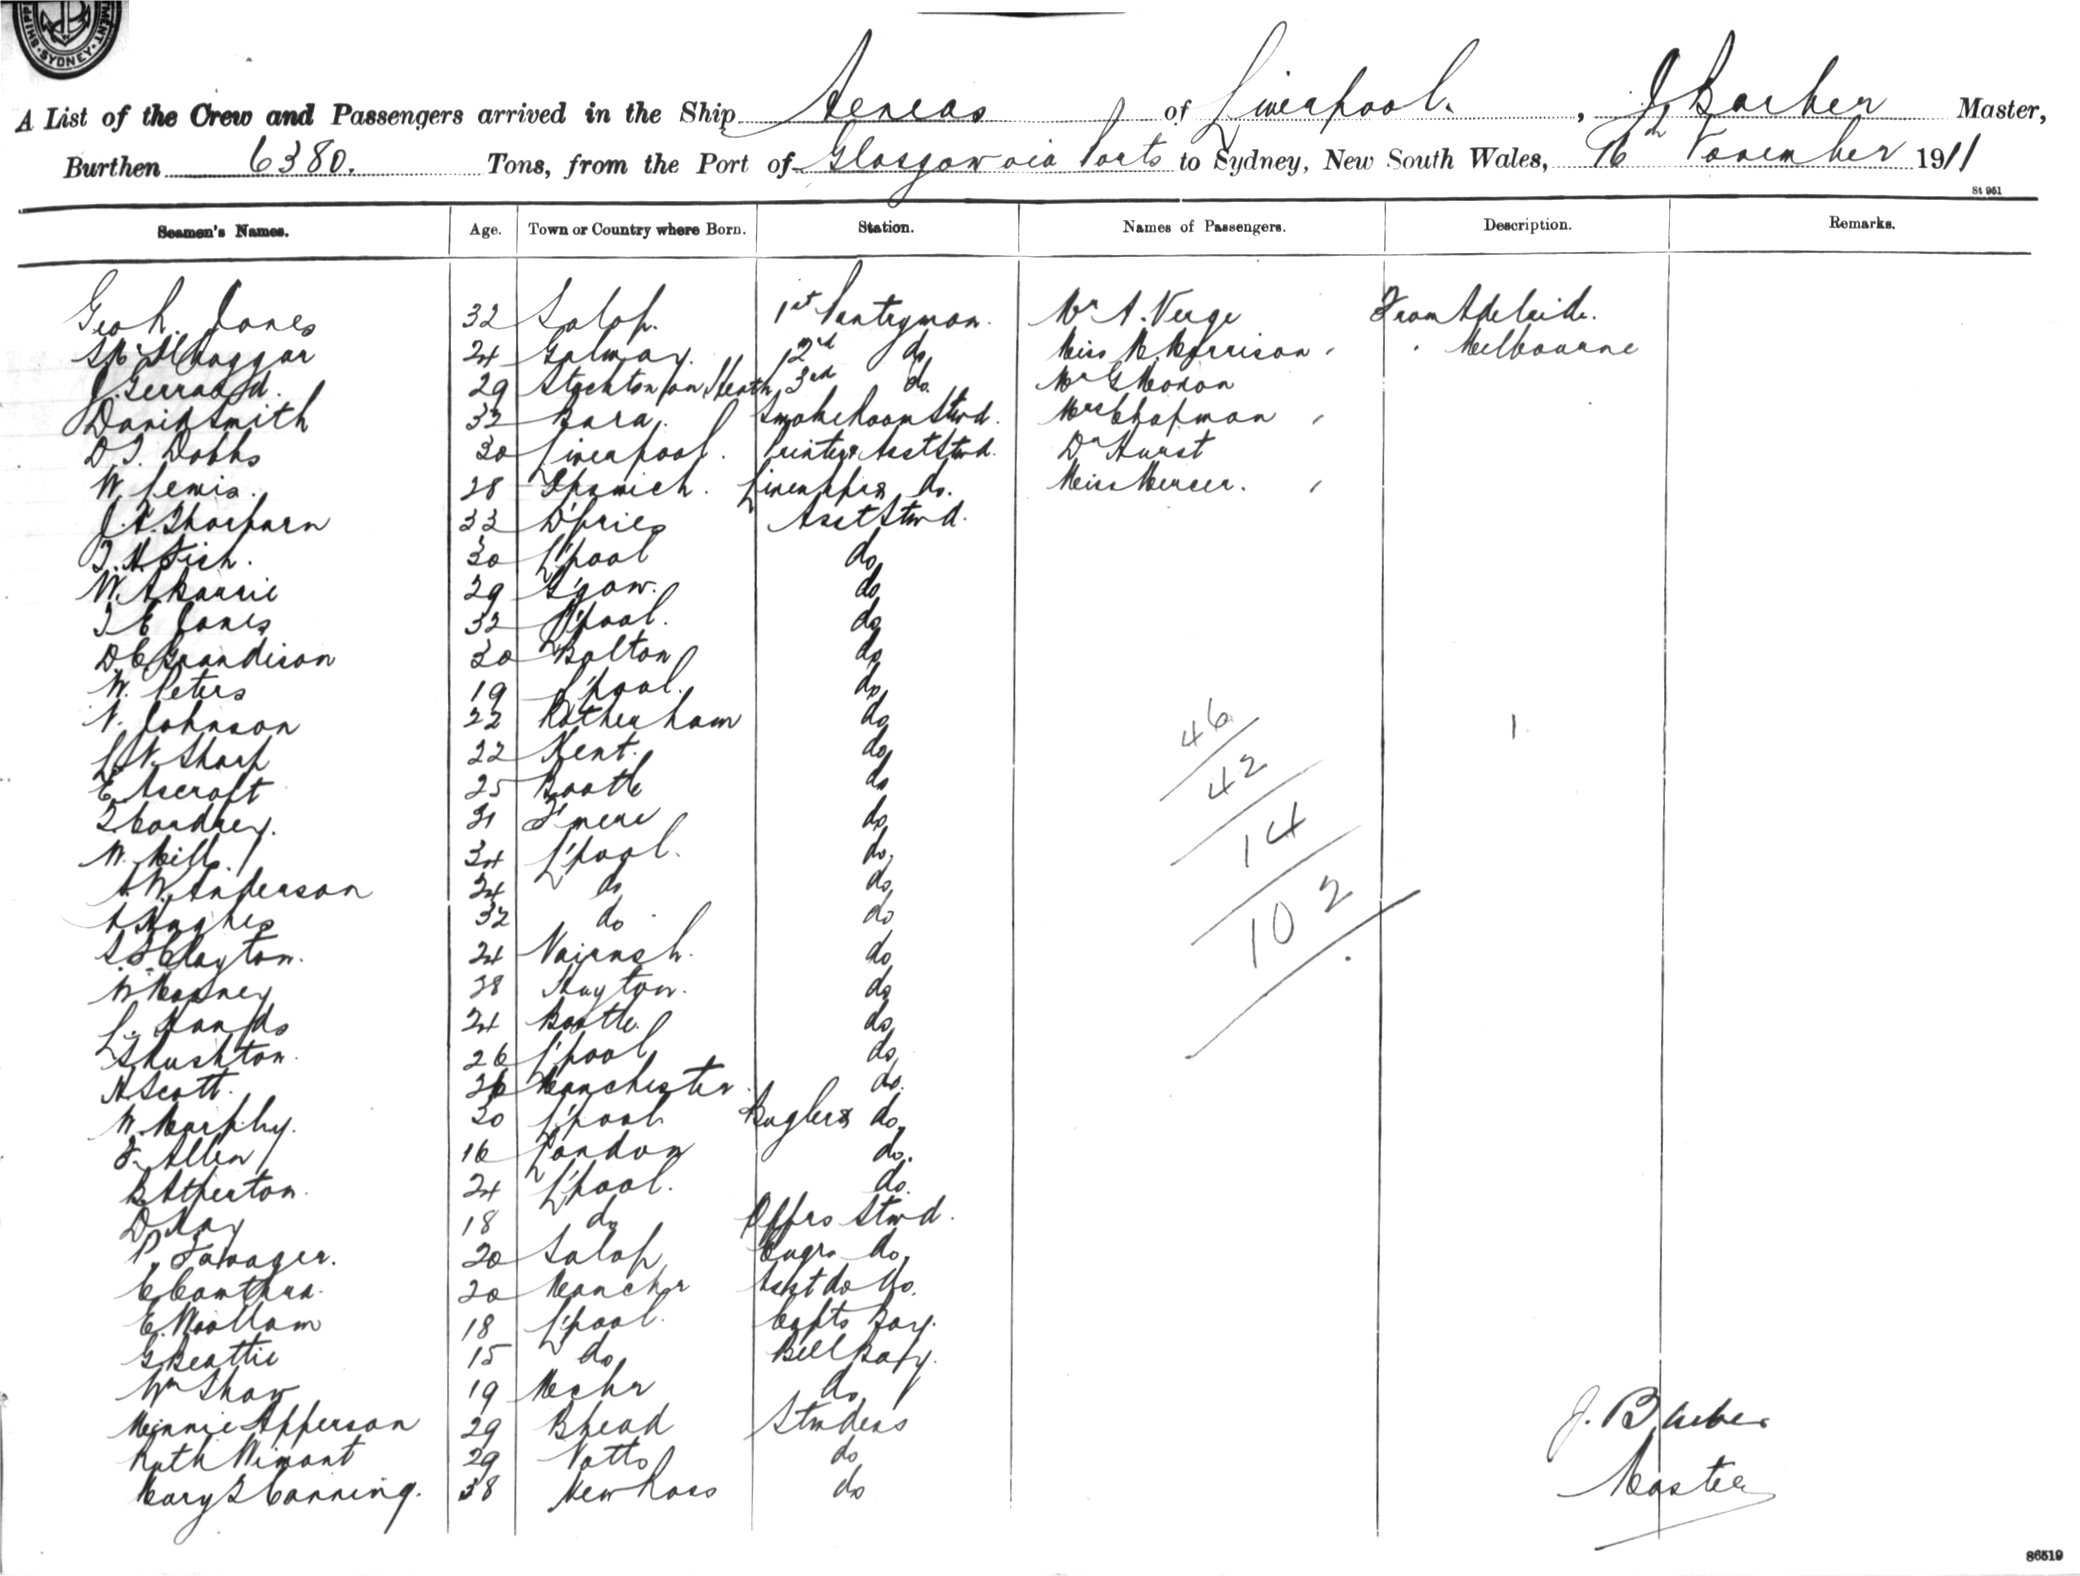 SHIPP · SYDNEY · TMENT
A List of the Crew and Passengers arrived in the Ship Aeneas of Liverpool, J. Barber Master,
Burthen 6380. Tons, from the Port of Glasgow via Ports to Sydney, New South Wales, 16th November 1911
St 961
Seamen's Names. Age. Town or Country where Born. Station. Names of Passengers. Description. Remarks.
Geo h. Jones 32 Salop. 1st Pantryman. Mr A. Verge From Adelaide.
24 Galway. 2nd do Miss M. Morrison " Melbourne
J. Gerrard. 29 Stockton on Heath 3rd do. Mr G Moxon
David Smith 32 Smoke Room Stwd. Mrs Chapman "
D J. Dobbs 30 Liverpool. Printer & Asst Stwd. Dr Hurst
W Lewis. 28 Ipswich. Linenkpr & do. Miss Mercer. "
33 D'fries Asst Stwd.
T. H. Fish. 30 L'pool do
W. A Barrie 29 G'gow. do
T E Jones 32 L'pool. do
D C Grandison 30 Bolton do
W. Peters 19 L'pool. do
N. Johnson 22 Rotherham do
L. N. Sharp 22 Kent. do
E Ascroft 25 Bootle do
T Cordrey. 31 T'mere do
W. Mills. 34 L'pool. do.
A. W. Anderson 24 do do
A Hughes 32 do do
Clayton. 24 Nairnsh. do
28 Huyton. do
L. Hands 24 Bootle. do
Rushton. 26 L'pool do
H Scott. 26 Manchester. do.
W. Murphy. 30 L'pool Bugler & do.
F. Allen 16 London do.
R. Atherton. 24 L'pool. do.
D Kay 18 do Offrs Stwd.
20 Salop Engrs do.
20 Manchr Asst do do.
E. Woollam 18 L'pool. Capts Boy.
G Beattie 15 do Bell Boy.
Wm Shaw 19 Mchr do
Minnie Apperson 29 B'head Stwdess
Ruth Wimant 29 Notts do
Mary J Canning. 38 New Ross do
46
42
14
102
1
J. Barber
Master
86519